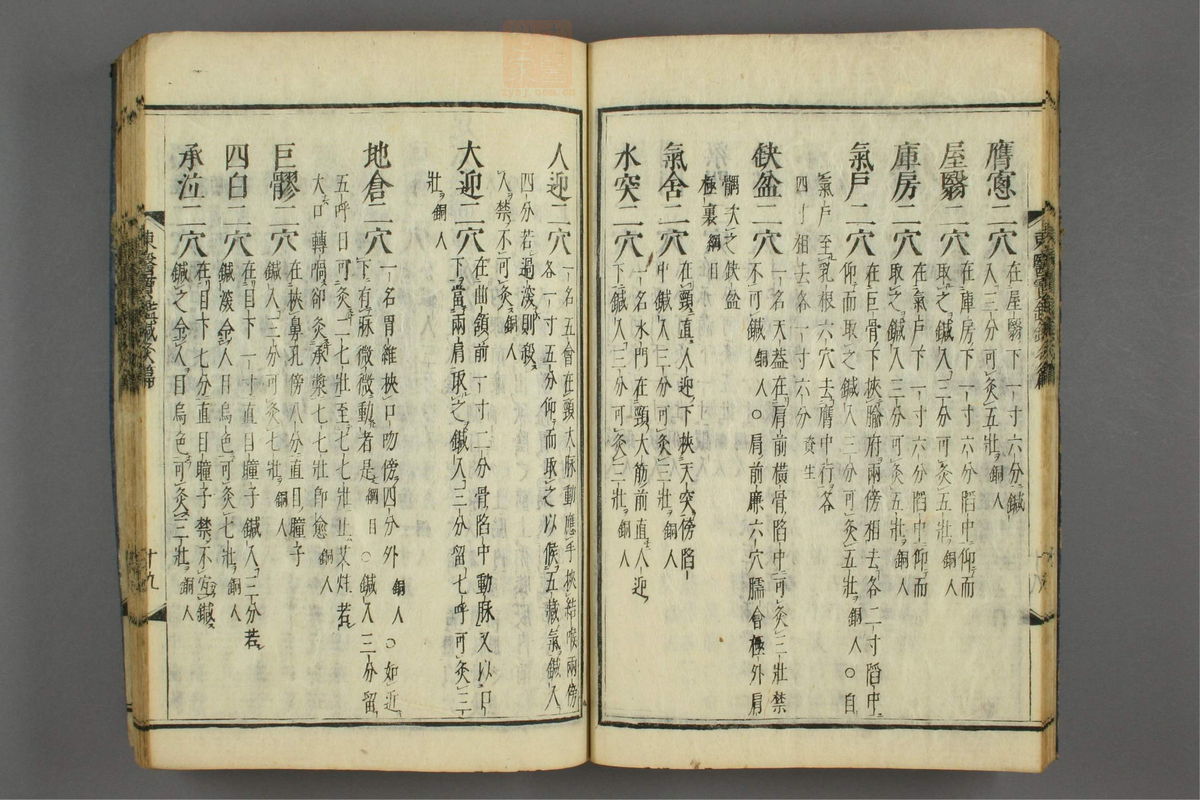 膺窓二穴
在屋翳下一寸六分鍼
入三分可灸五壯銅人
屋翳二穴
在庫房下一寸六分陷中仰而
取之鍼入三分可灸五壯銅人
庫房二穴
在氣戶下一寸六分陷中仰而
取之鍼入三分可灸五壯銅人
氣戶二穴
在巨骨下挾腧府兩傍相去各二寸陷中
仰而取之鍼入三分可灸五壯銅人○自
氣戶至乳根六穴去膺中行各
四寸相去各一寸六分資生
缺盆二穴
一名天盖在肩前橫骨陷中可灸三壯禁
不可鍼銅人○肩前廉六穴臑會極外肩
髃次之缺盆
極裏綱目
氣舍二穴
在頸直人迎下挾天突傍陷
中鍼入三分可灸三壯銅人
水突二穴
一名水門在頸大筋前直人迎
下鍼入三分可灸三壯銅人
人迎二穴
一名五會在頸大脉動應手挾結喉兩傍
各一寸五分仰而取之以候五藏氣鍼入
四分若過深則殺
人禁不可灸銅人
大迎二穴
在曲頷前一寸二分骨陷中動脉又以口
下當兩肩取之鍼入三分留七呼可灸三
壯銅人
地倉二穴
一名胃維挾口吻傍四分外銅人○如近
下有脉微微動者是綱目○鍼入三分留
五呼日可灸二七壯至七七壯止艾炷若
大口轉喎却灸承漿七七壯卽愈銅人
巨髎二穴
在挾鼻孔傍八分直目瞳子
鍼入三分可灸七壯銅人
四白二穴
在目下一寸直目瞳子鍼入三分若
鍼深令人目烏色可灸七壯銅人
承泣二穴
在目下七分直目瞳子禁不宜鍼
鍼之令人目烏色可灸三壯銅人
東醫寶鑑鍼灸篇
十九